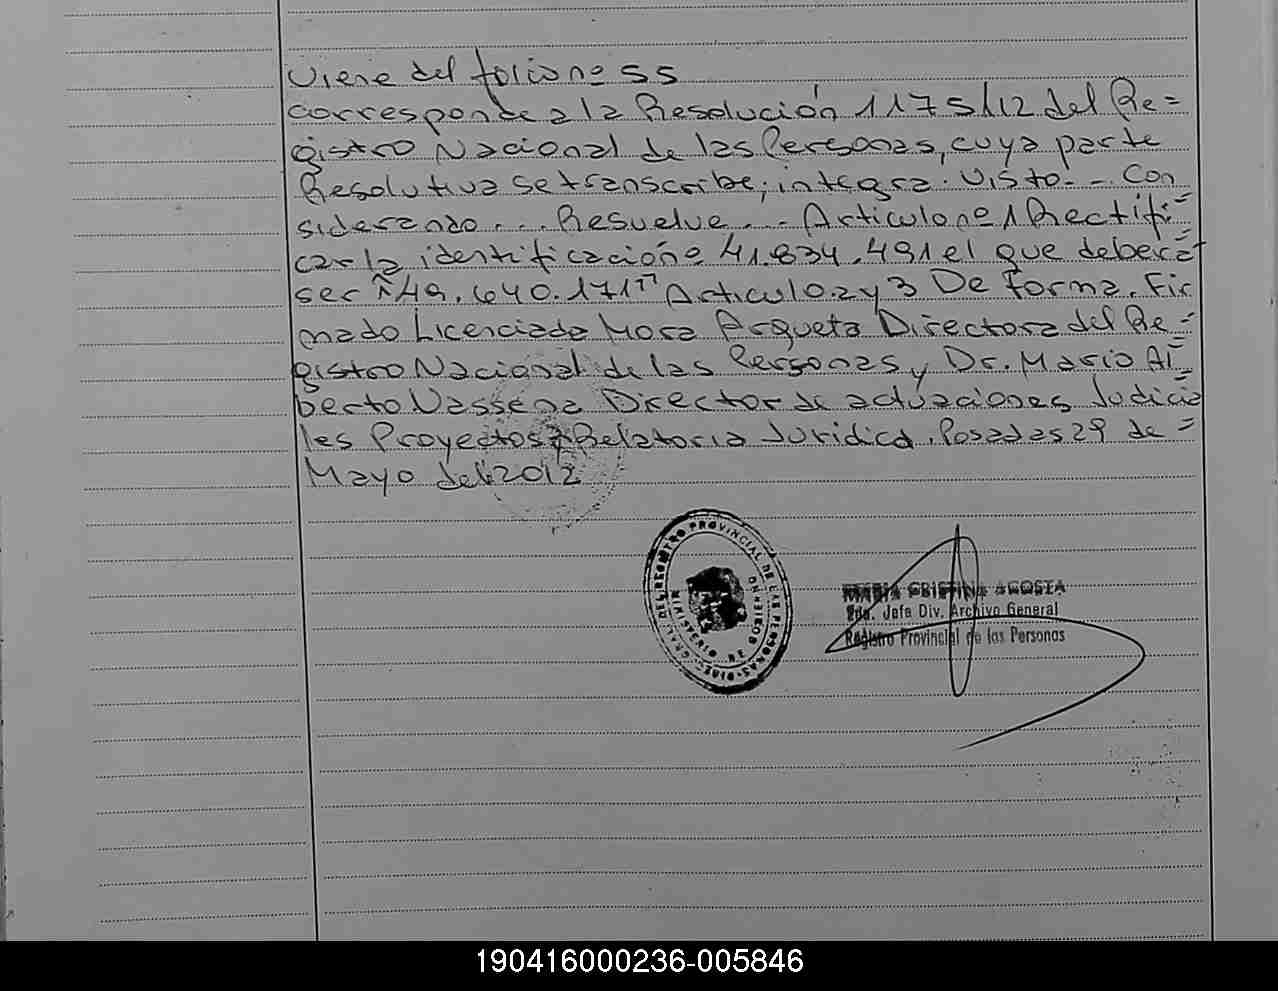 Viene del folio no 55
corresponde a la Resolución 1175/12 del Re=
gistro Nacional de las Personas, cuya parte
Resolutiva se transcribe, integra. Visto. - . Con
siderando... Resuelve... Articulo no 1 Rectifi=
car la identificación 41.834.491 el que deberá
ser 49.640.171 Articulo 2 y 3 De forma. Fir
mado Licenciada Mora Arqueta Directora del Re=
gistro Nacional de las Personas y Dr. Mario Al=
berto Vassena Director de actuaciones Judicia
les Proyectos y Relatoria Juridica. Posadas 29 de =
Mayo del 2012
DEL REGISTRO PROVINCIAL DE LAS PERSONAS
MINISTERIO DE GOBIERNO
MARIA CRISTINA ACOSTA
2da. Jefa Div. Archivo General
Registro Provincial de las Personas
190416000236-005846